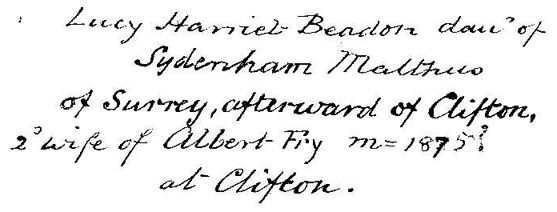 Lucy Harriet Beadon dauʳ of
Sydenham Malthus
of Surrey, afterward of Clifton.
2ᵈ wife of Albert Fry m= 1875?
at Clifton.